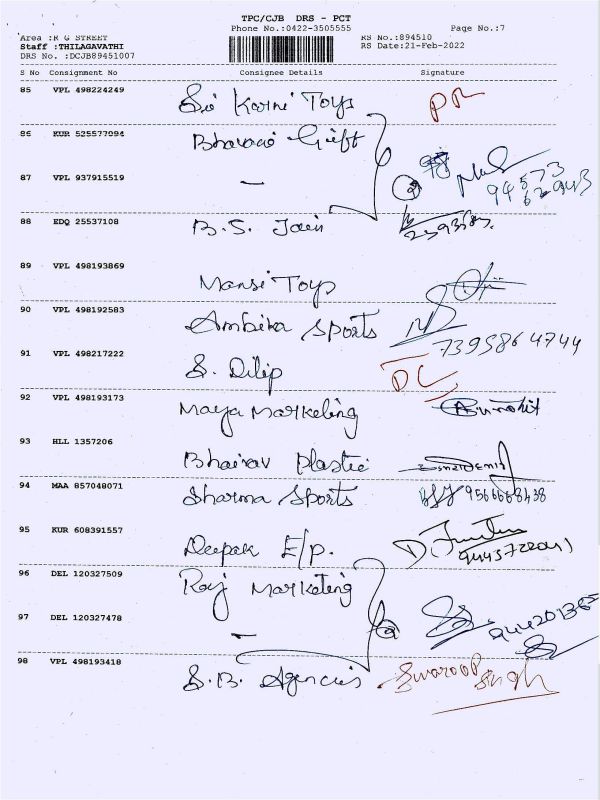 TPC/CJB DRS - PCT
Phone No.:0422-3505555 Page No.:7
Area :R G STREET RS No.:894510
Staff :THILAGAVATHI RS Date:21-Feb-2022
DRS No. :DCJB89451007
S No Consignment No Consignee Details Signature
85 VPL 498224249 Sri Karni Toys PR
86 KUR 525577094 Bhavani Gift
87 VPL 937915519 —
94573
62943
88 EDQ 25537108 B.S. Jain
89 VPL 498193869 Mansi Toys
90 VPL 498192583 Ambika Sports
7395864744
91 VPL 498217222 S. Dilip
92 VPL 498193173 Maya Marketing
93 HLL 1357206 Bhairav Plastic
94 MAA 857048071 Sharma Sports 9566668438
95 KUR 608391557 Deepak E/p.
96 DEL 120327509 Raj Marketing
97 DEL 120327478 —
98 VPL 498193418 S.B. Agencies Swaroop Singh